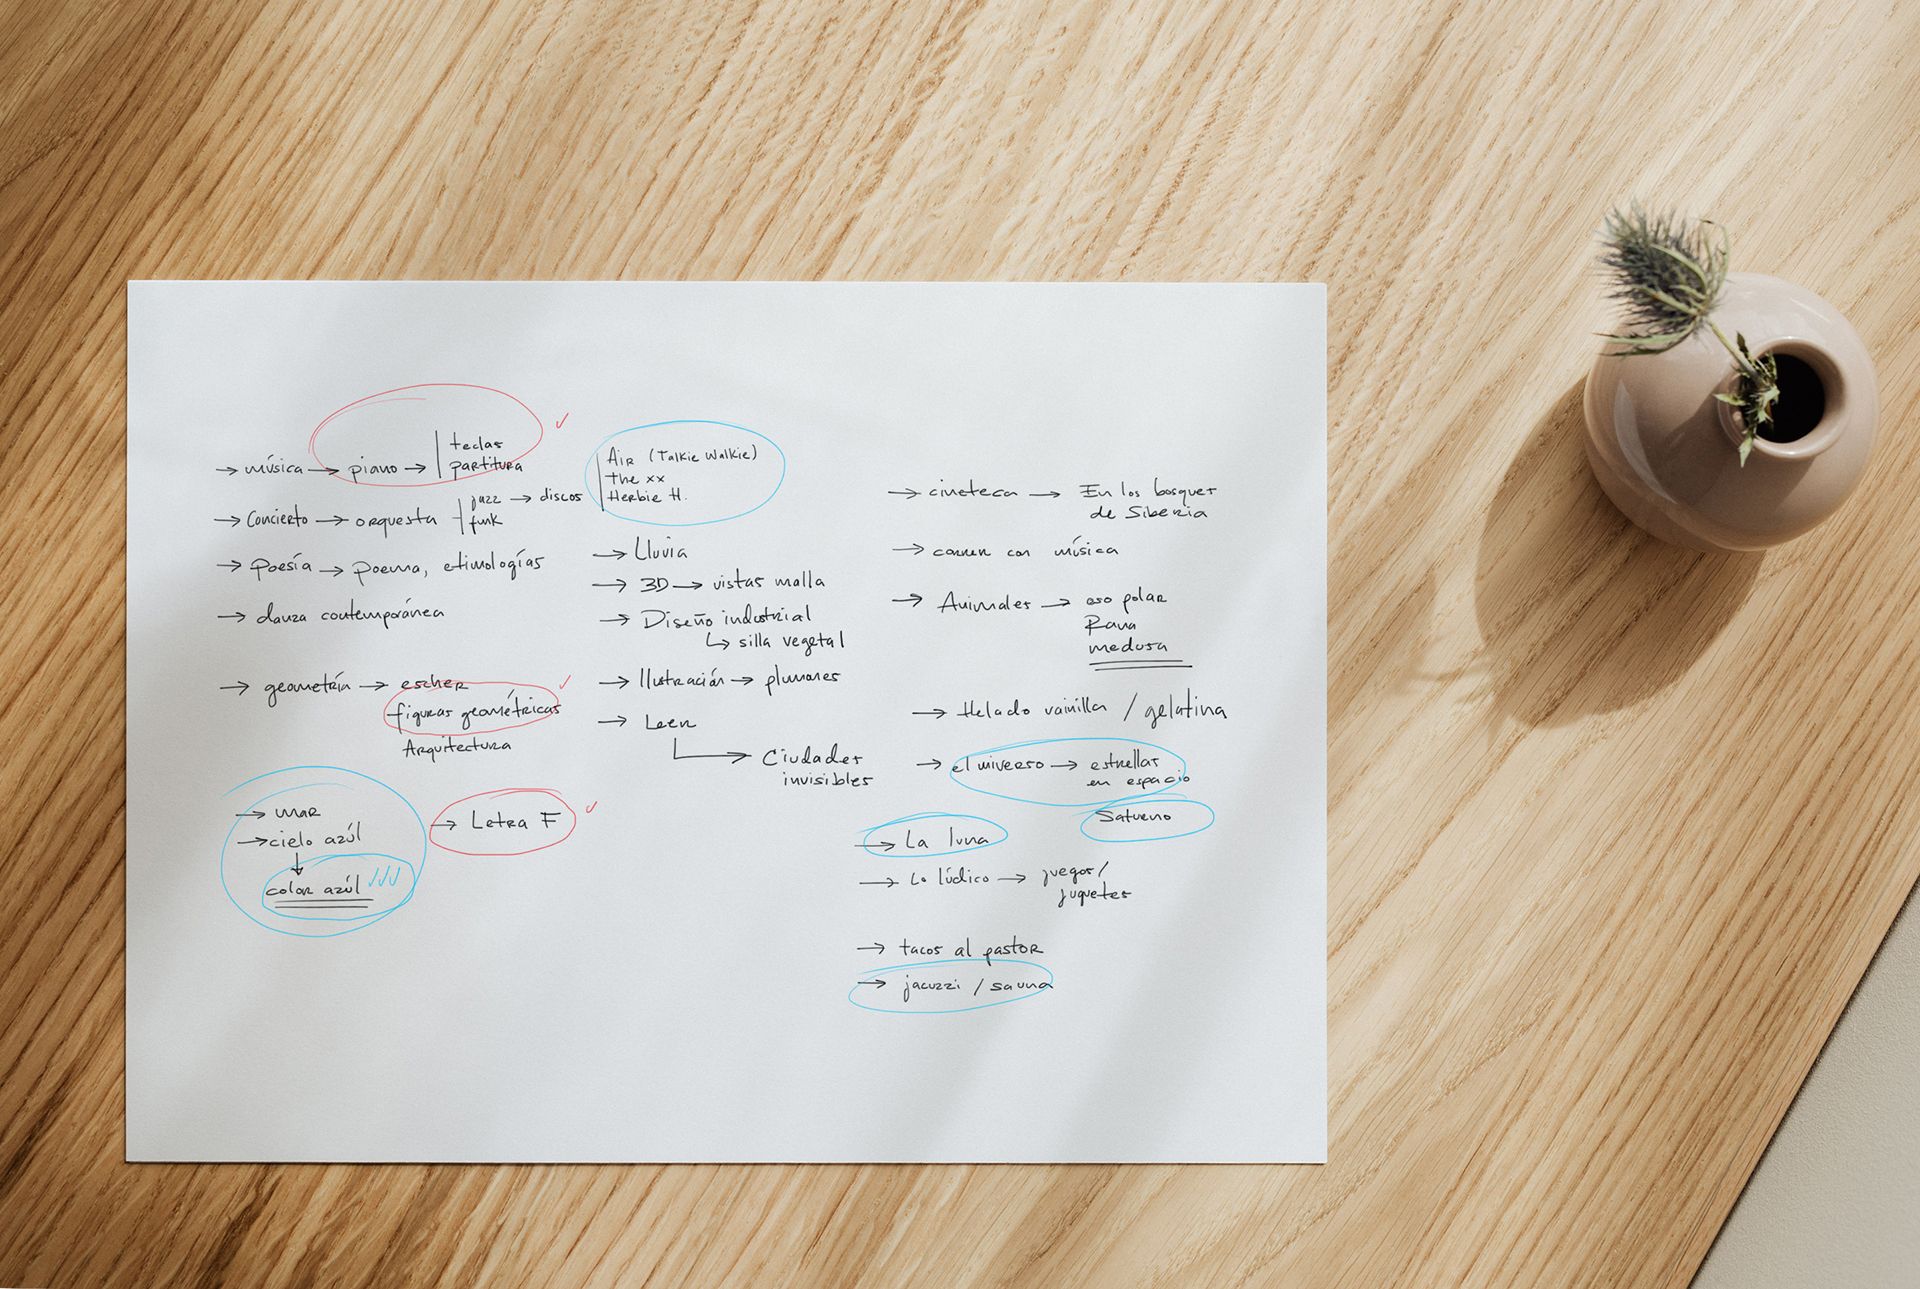 → música → piano → | teclas
partitura
→ Concierto → orquesta | jazz → discos
funk
→ Poesía → poema, etimologías
→ danza contemporánea
→ geometría → escher
figuras geométricas
Arquitectura
→ mar
→ cielo azúl
↓
color azúl
→ Letra F
Air (Talkie Walkie)
the xx
Herbie H.
→ Lluvia
→ 3D → vistas malla
→ Diseño industrial
↳ silla vegetal
→ Ilustración → plumones
→ Leer
Ciudades
invisibles
→ cineteca → En los bosques
de Siberia
→ correr con música
→ Animales → oso polar
Rana
medusa
→ Helado vainilla / gelatina
→ el universo → estrellas
en espacio
Saturno
→ La luna
→ Lo lúdico → juegos/
juguetes
→ tacos al pastor
→ jacuzzi / sauna